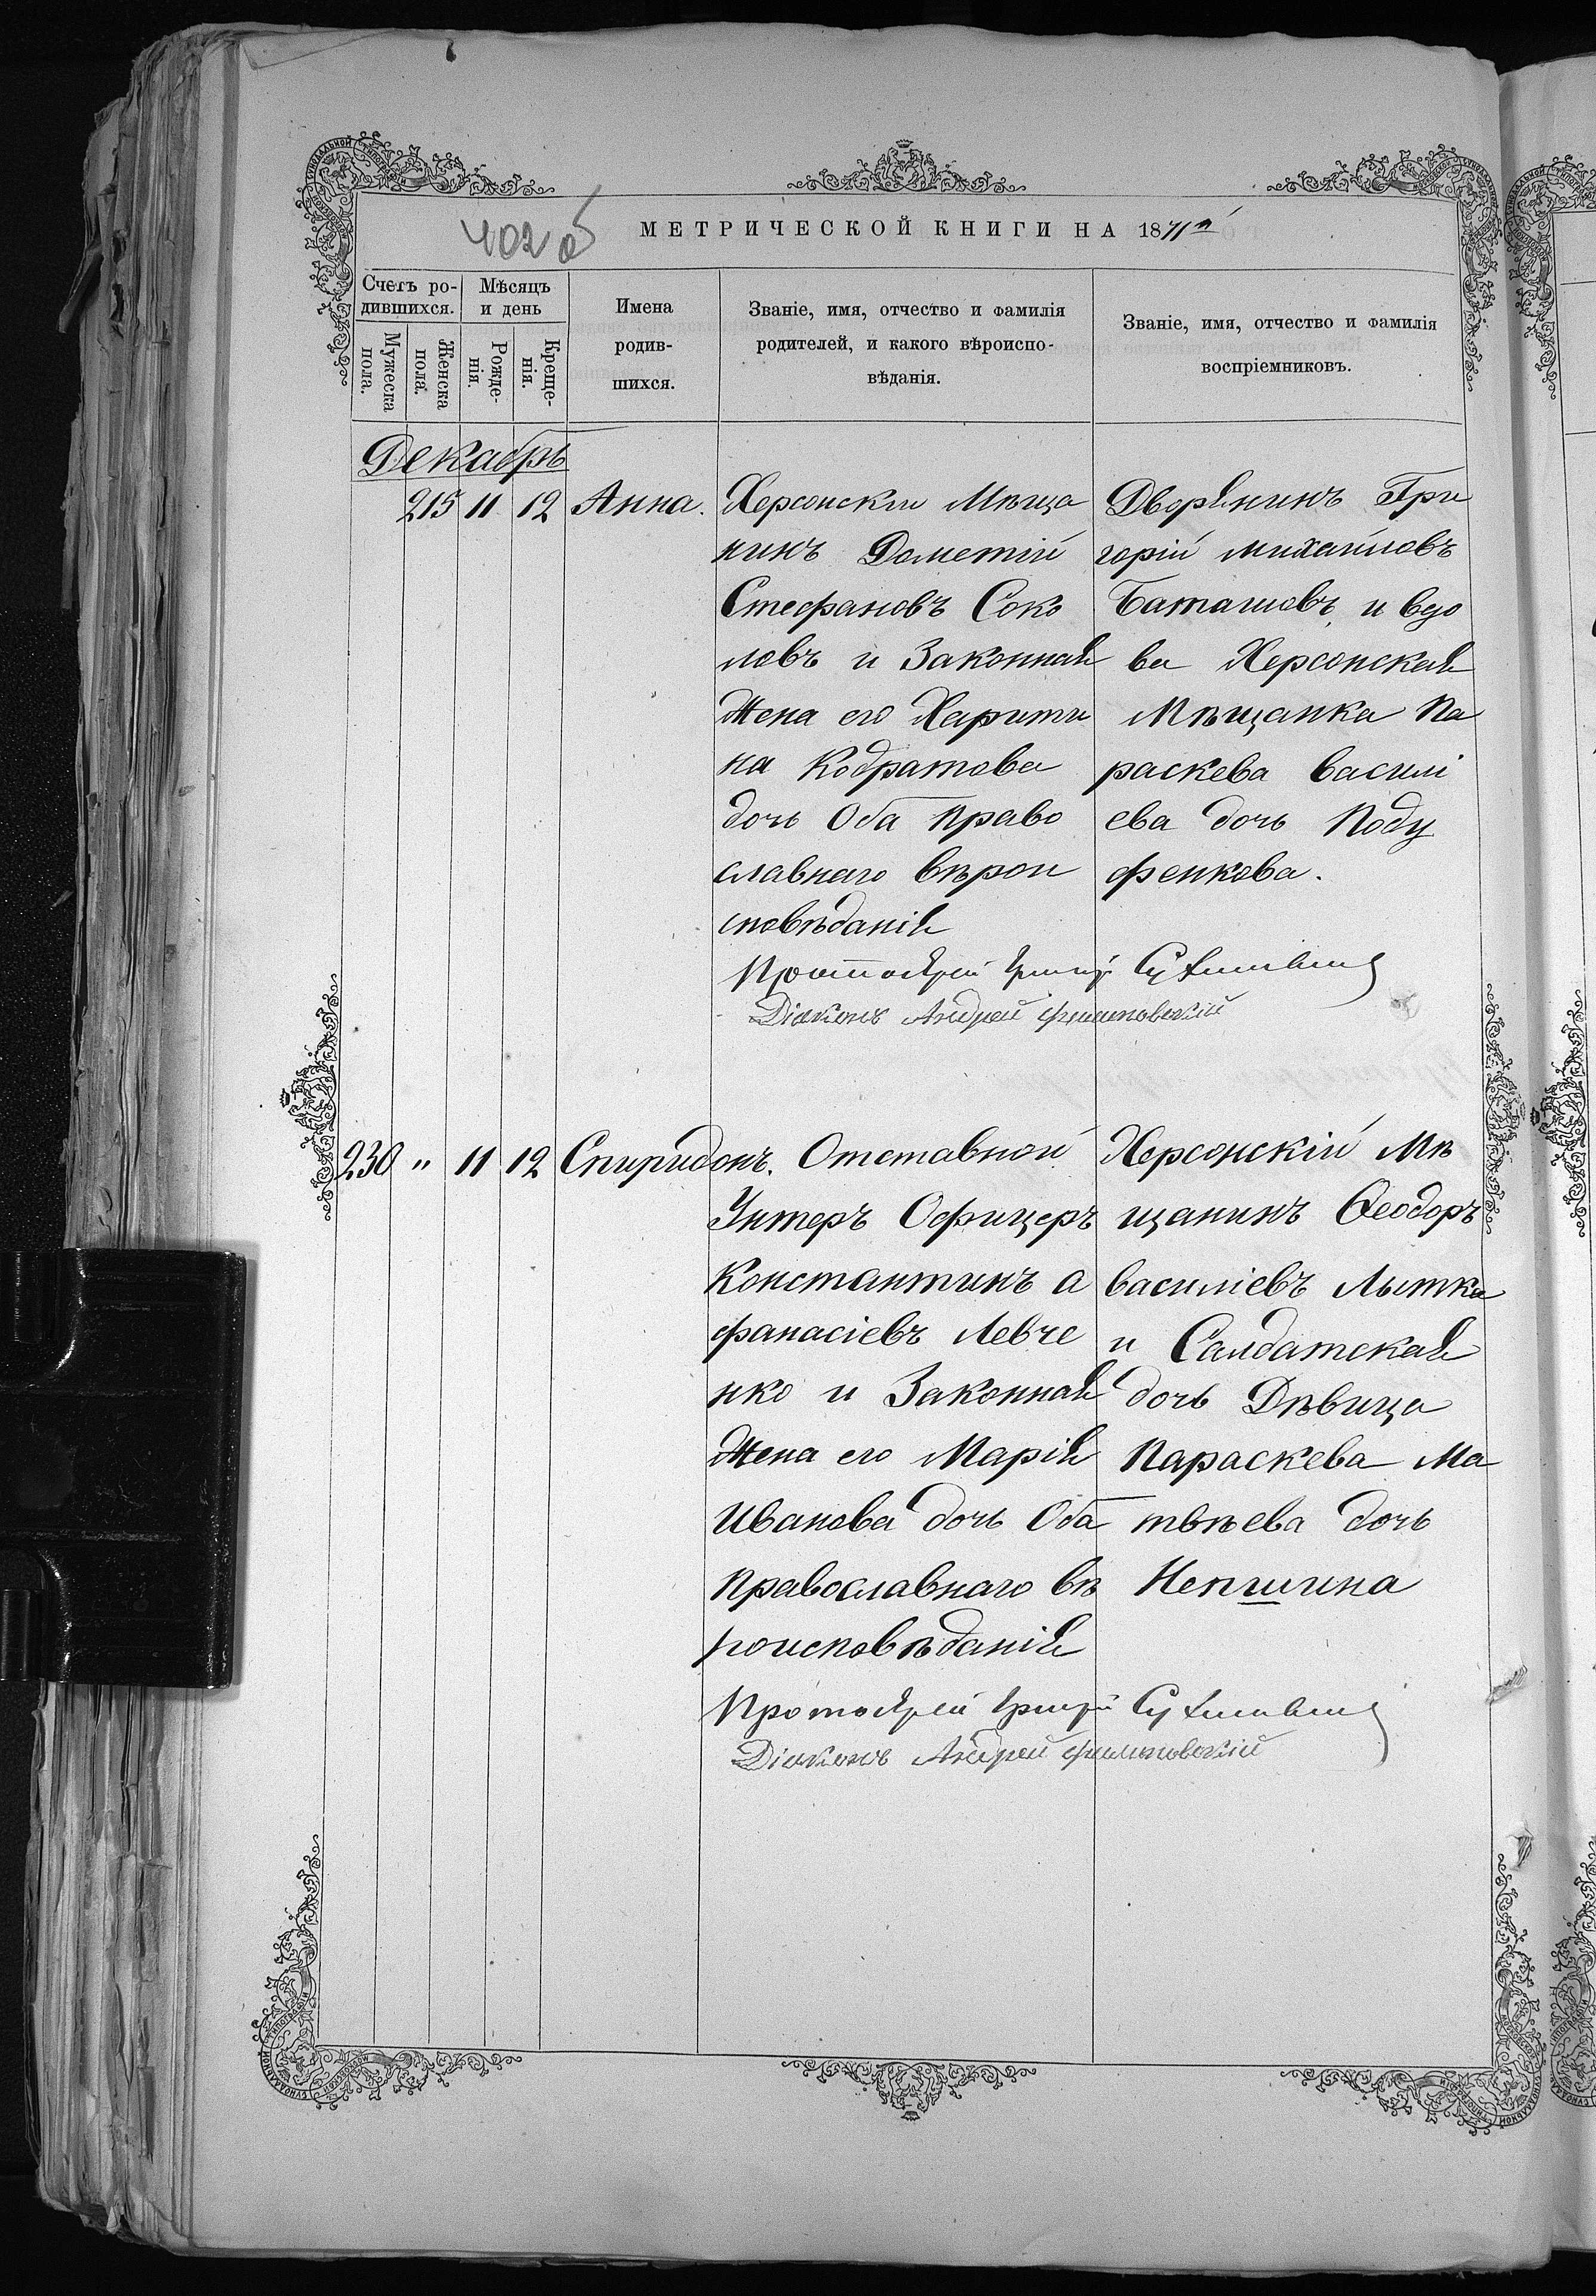 402 об
МЕТРИЧЕСКОЙ КНИГИ НА 1871й
Счетъ ро-
дившихся.
Мужеска
пола.
Женска
пола.
Мѣсяцъ
и день
Рожде-
нія.
Креще-
нія.
Имена
родив-
шихся.
Званіе, имя, отчество и фамилія
родителей, и какого вѣроиспо-
вѣданія.
Званіе, имя, отчество и фамилія
воспріемниковъ.
Декабрь
215 11 12 Анна.
Херсонскій Мѣща
нинъ Дометій
Стефановъ Соко
ловъ и Законная
Жена его Харити
на Кодратова
дочь Оба право
славнаго вѣрои
сповѣданія
Дворянинъ Гри
горій михайловъ
Баташовъ и вдо
ва Херсонская
Мѣщанка Па
раскева василі
ева дочь Поду
фенкова.
Протоіерей
Діаконъ Андрей
230 " 11 12 Спиридонъ.
Отставной
Унтеръ Офицеръ
Константинъ а
фанасіевъ Левче
нко и Законная
Жена его Марія
Иванова дочь Оба
православнаго вѣ
роисповѣданія
Херсонскій Мѣ
щанинъ Ѳеодоръ
василіевъ Лытка
и Салдатская
дочь Дѣвица
Параскева Ма
твѣева дочь
Непшина
Протоіерей
Діаконъ Андрей